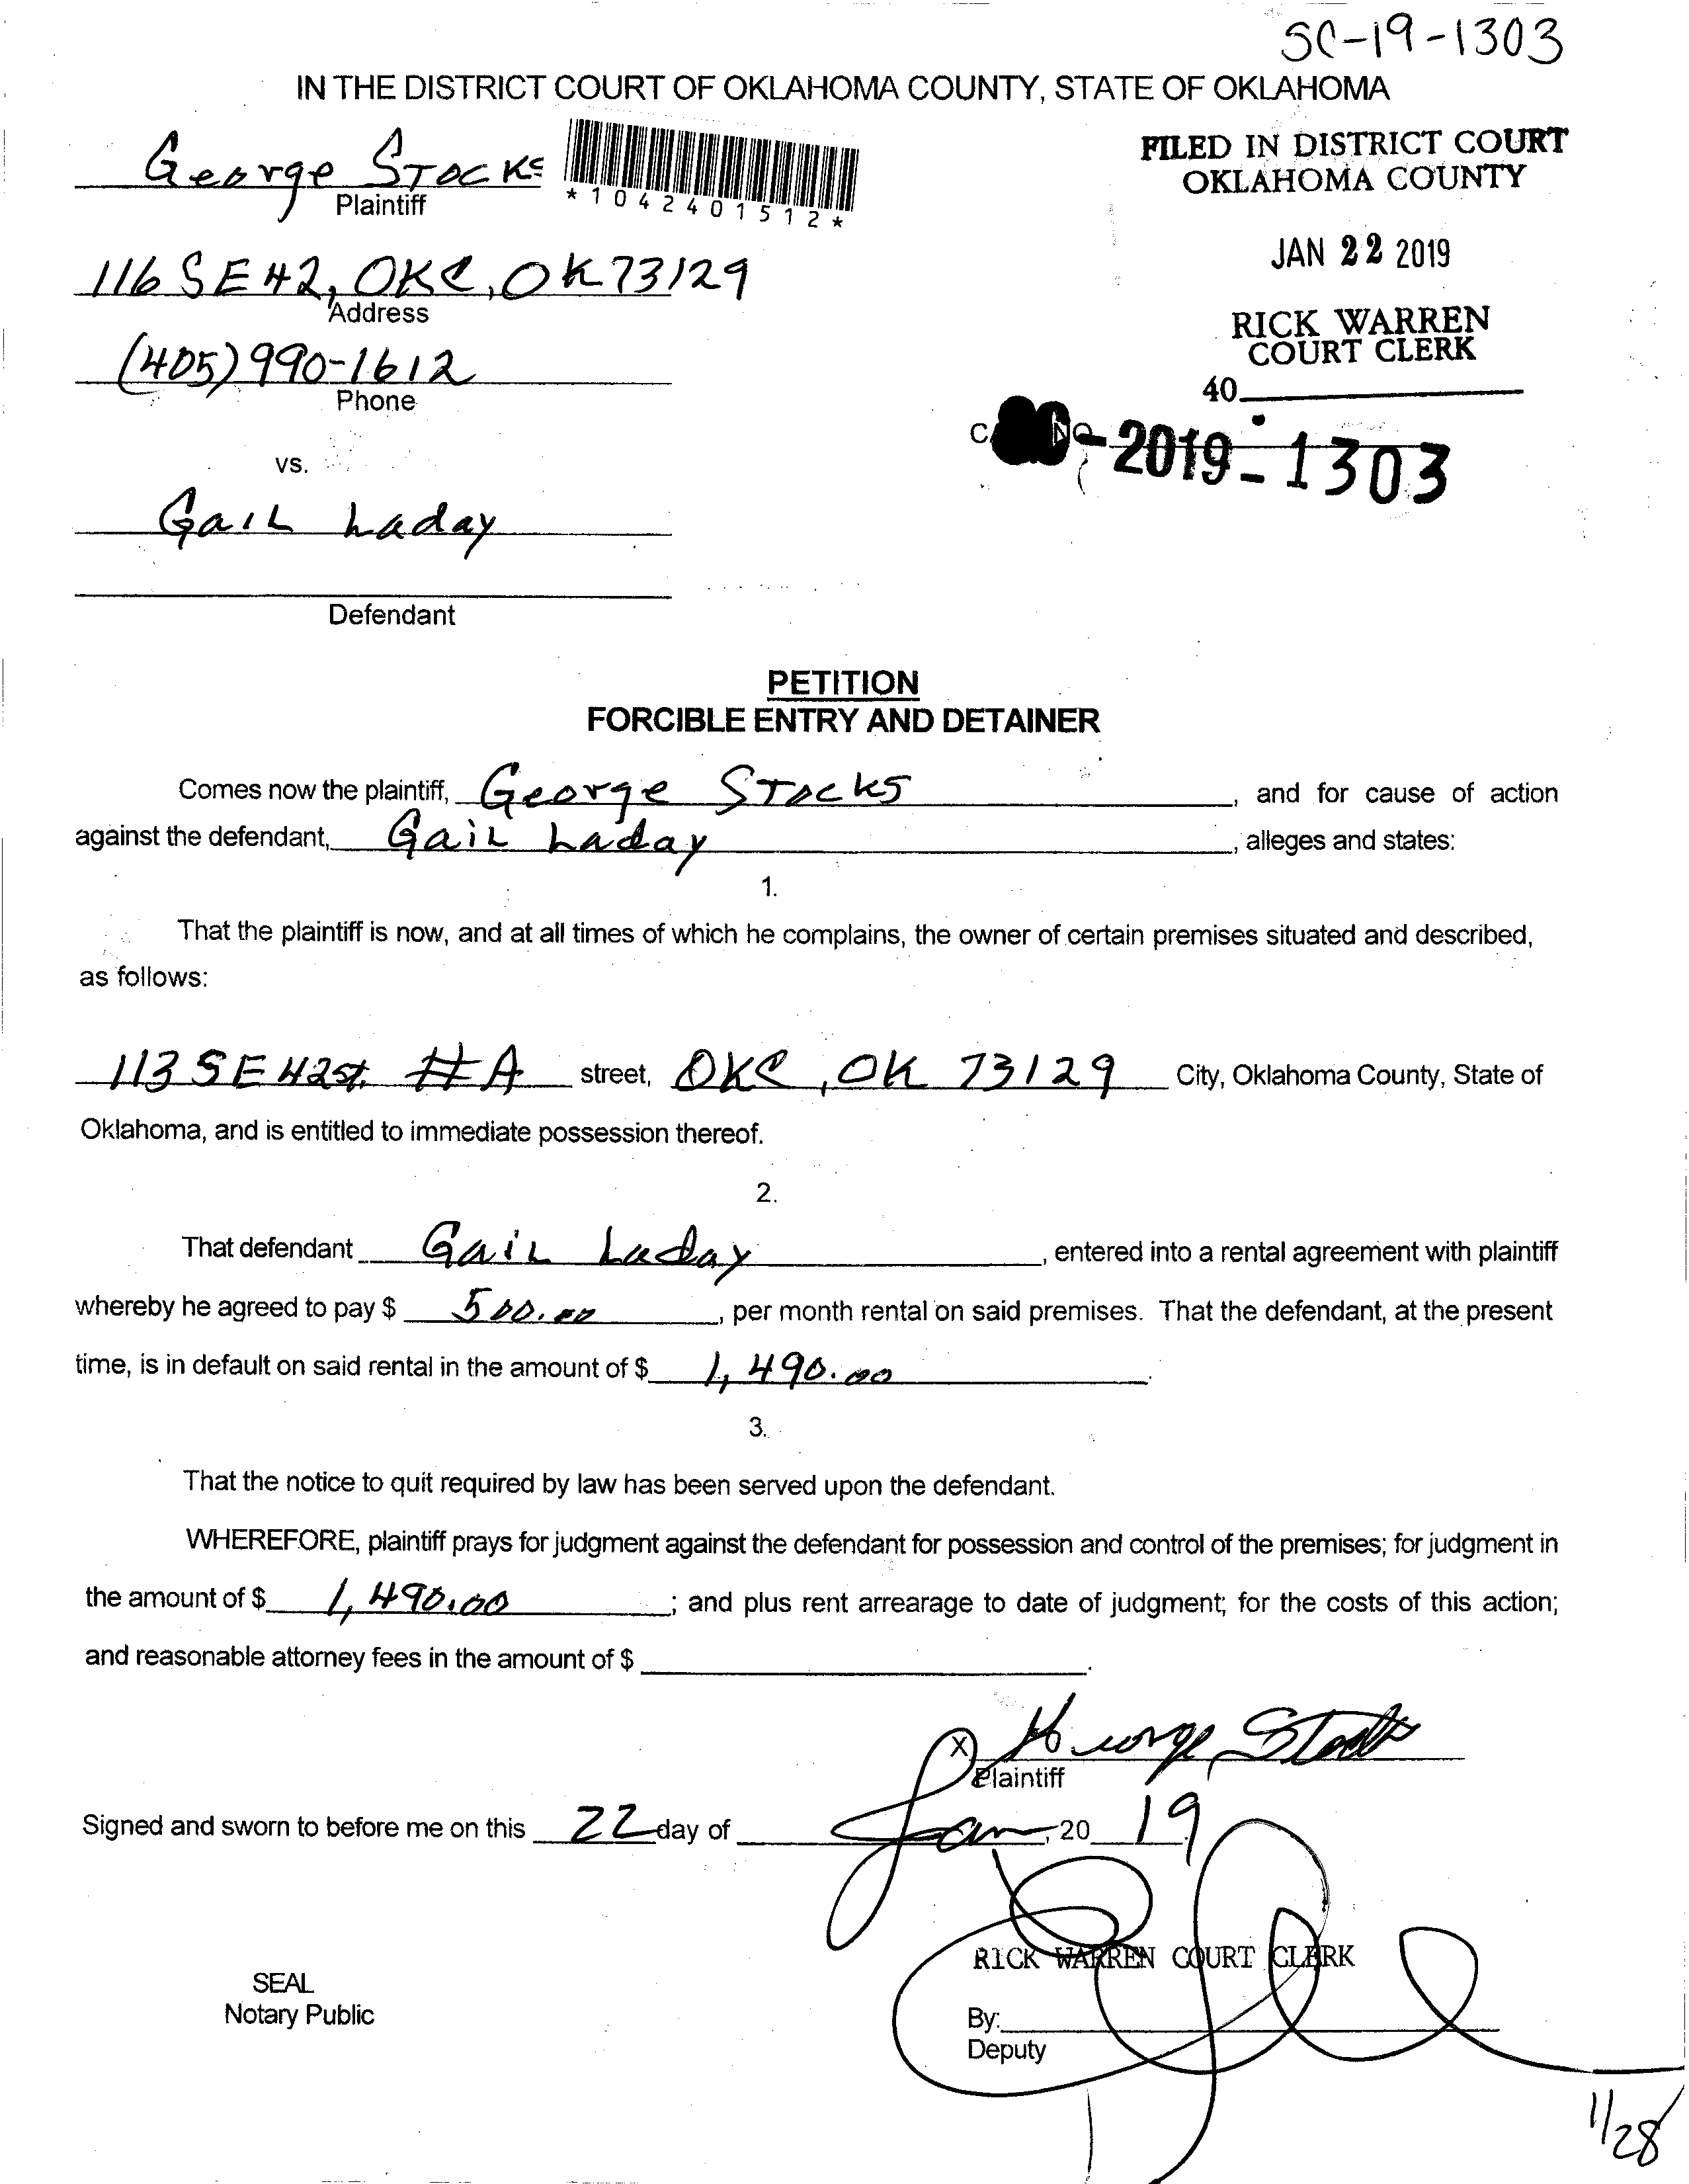 SC-19-1303
IN THE DISTRICT COURT OF OKLAHOMA COUNTY, STATE OF OKLAHOMA
George Stocks
Plaintiff
*1042401512*
FILED IN DISTRICT COURT
OKLAHOMA COUNTY
JAN 22 2019
RICK WARREN
COURT CLERK
40
116 SE 42, OKC, OK 73129
Address
(405) 990-1612
Phone
-2019-1303
vs.
Gail Laday
Defendant
PETITION
FORCIBLE ENTRY AND DETAINER
Comes now the plaintiff, George Stocks, and for cause of action
against the defendant, Gail Laday, alleges and states:
1.
That the plaintiff is now, and at all times of which he complains, the owner of certain premises situated and described,
as follows:
113 SE 42st. #A street, OKC, OK 73129 City, Oklahoma County, State of
Oklahoma, and is entitled to immediate possession thereof.
2.
That defendant Gail Laday, entered into a rental agreement with plaintiff
whereby he agreed to pay $ 500.00, per month rental on said premises. That the defendant, at the present
time, is in default on said rental in the amount of $ 1,490.00.
3.
That the notice to quit required by law has been served upon the defendant.
WHEREFORE, plaintiff prays for judgment against the defendant for possession and control of the premises; for judgment in
the amount of $ 1,490.00; and plus rent arrearage to date of judgment; for the costs of this action;
and reasonable attorney fees in the amount of $ .
X George Stocks
Plaintiff
Signed and sworn to before me on this 22 day of Jan, 2019.
RICK WARREN COURT CLERK
SEAL
Notary Public
By:
Deputy
1/28